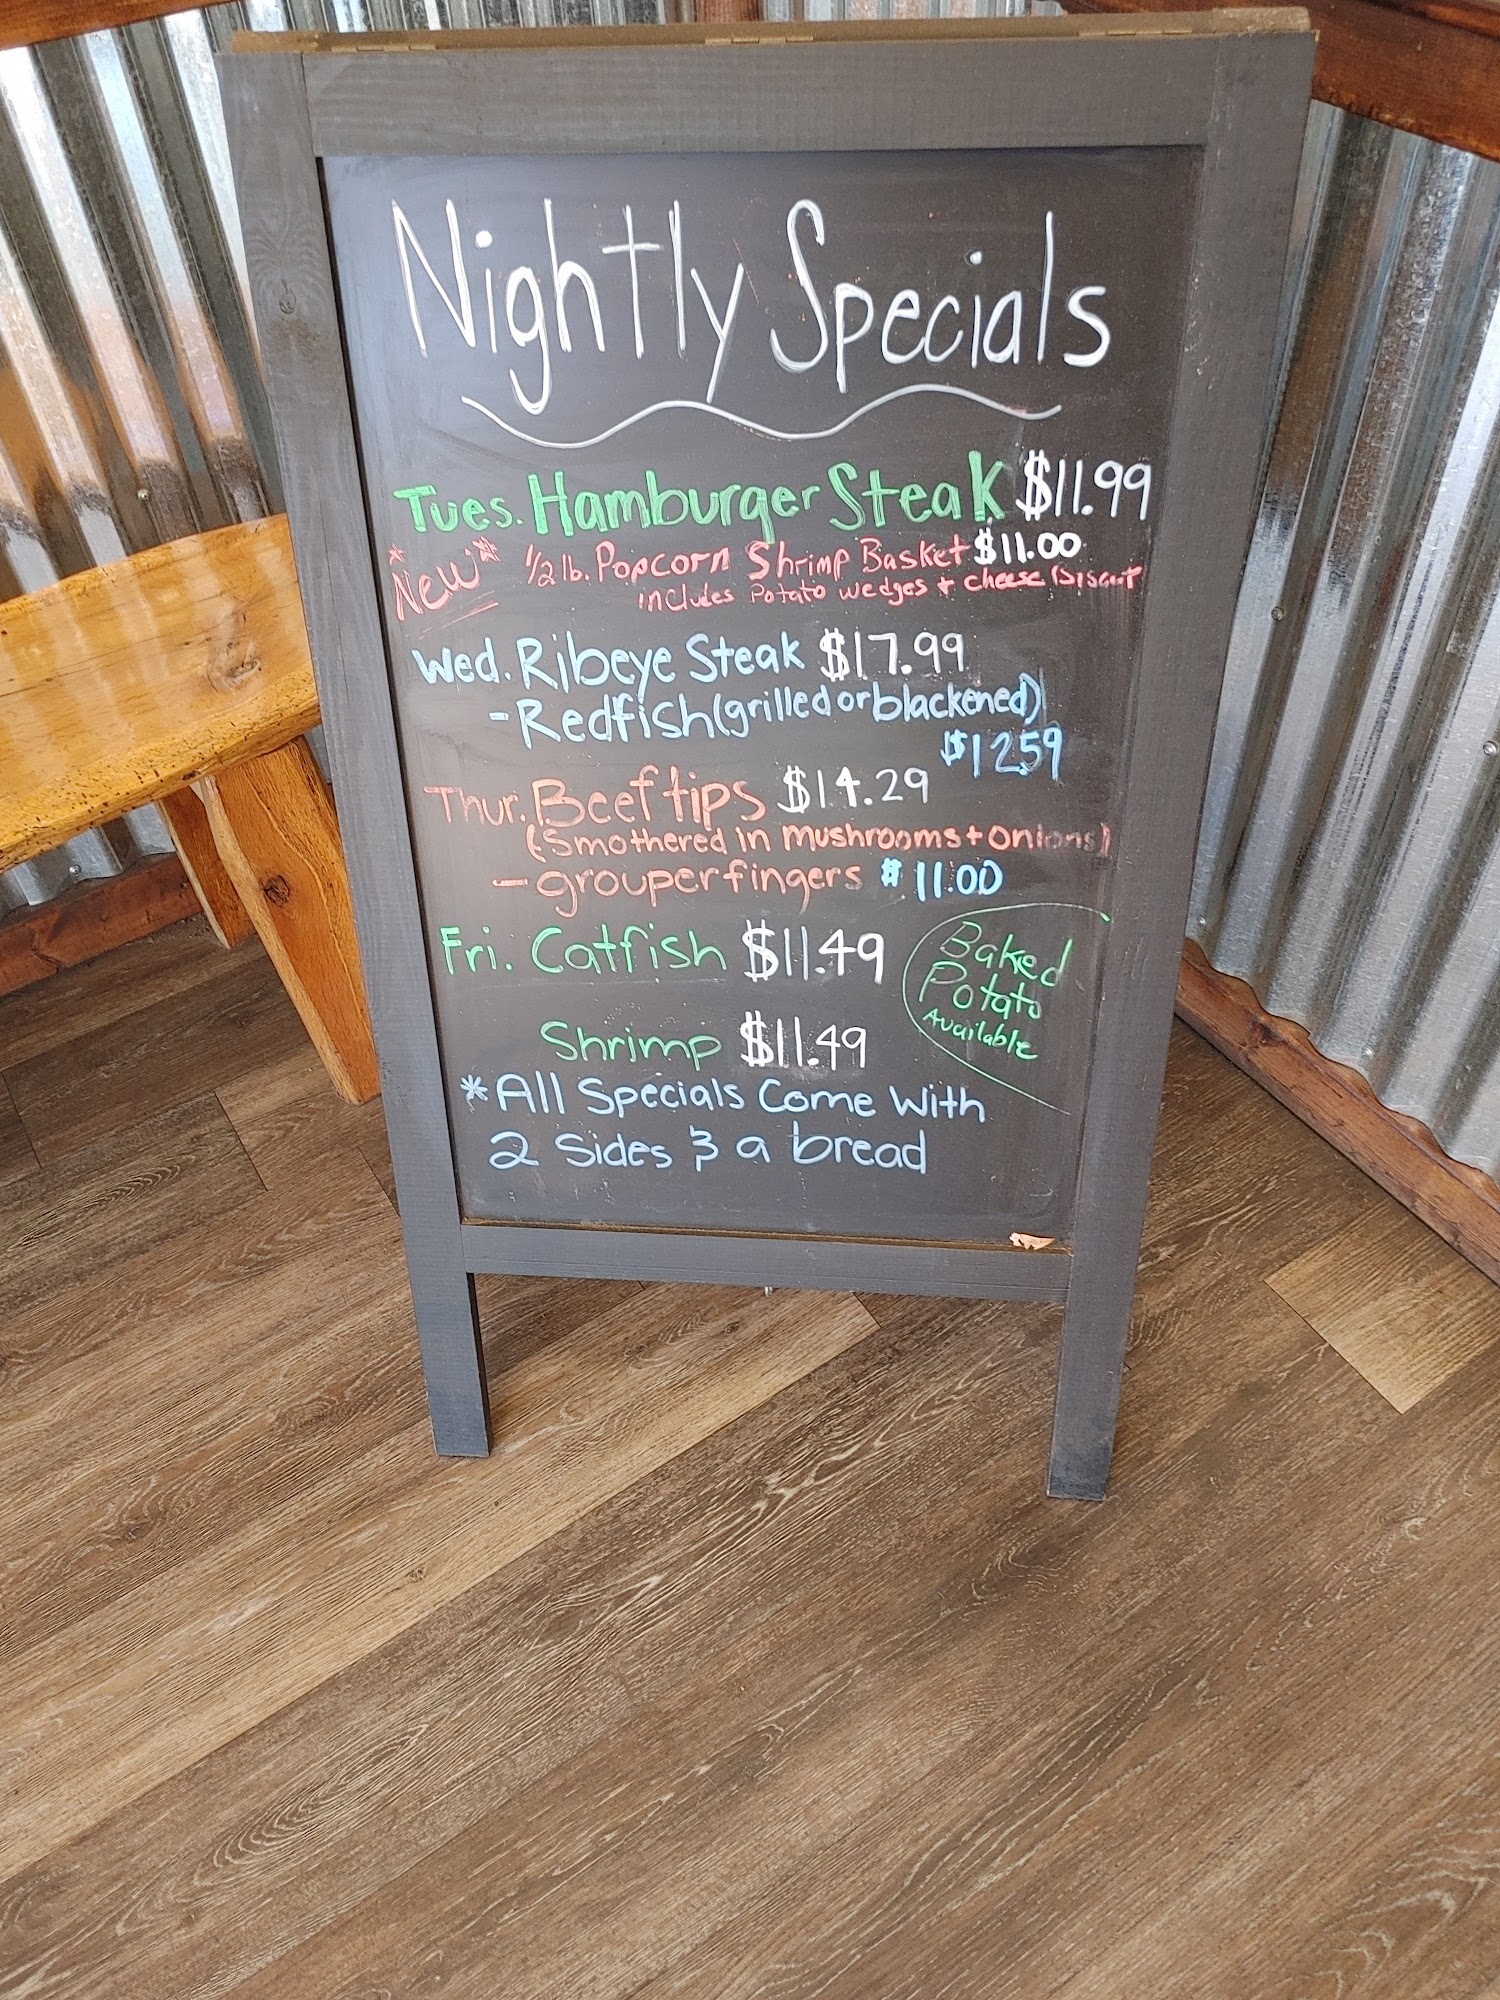 Nightly Specials
Tues. Hamburger Steak $11.99
*New* 1/2 lb. Popcorn Shrimp Basket $11.00
includes Potato wedges + cheese Biscuit
Wed. Ribeye Steak $17.99
- Redfish (grilled or blackened)
$12.59
Thur. Beef tips $14.29
(Smothered in mushrooms + onions)
- grouper fingers $11.00
Fri. Catfish $11.49
Shrimp $11.49
Baked
Potato
Available
*All Specials Come With
2 Sides & a bread